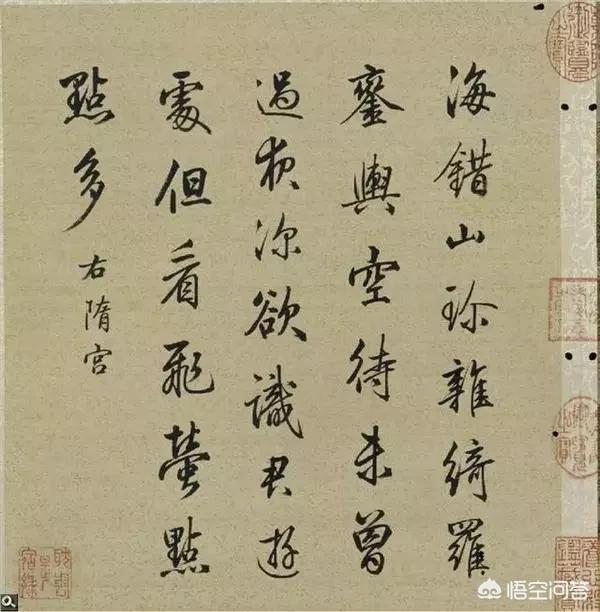 海錯山珍雜綺羅
鑾輿空待未曾
過夜深欲識君遊
處但看飛螢點
點多
右隋宮
悟空问答